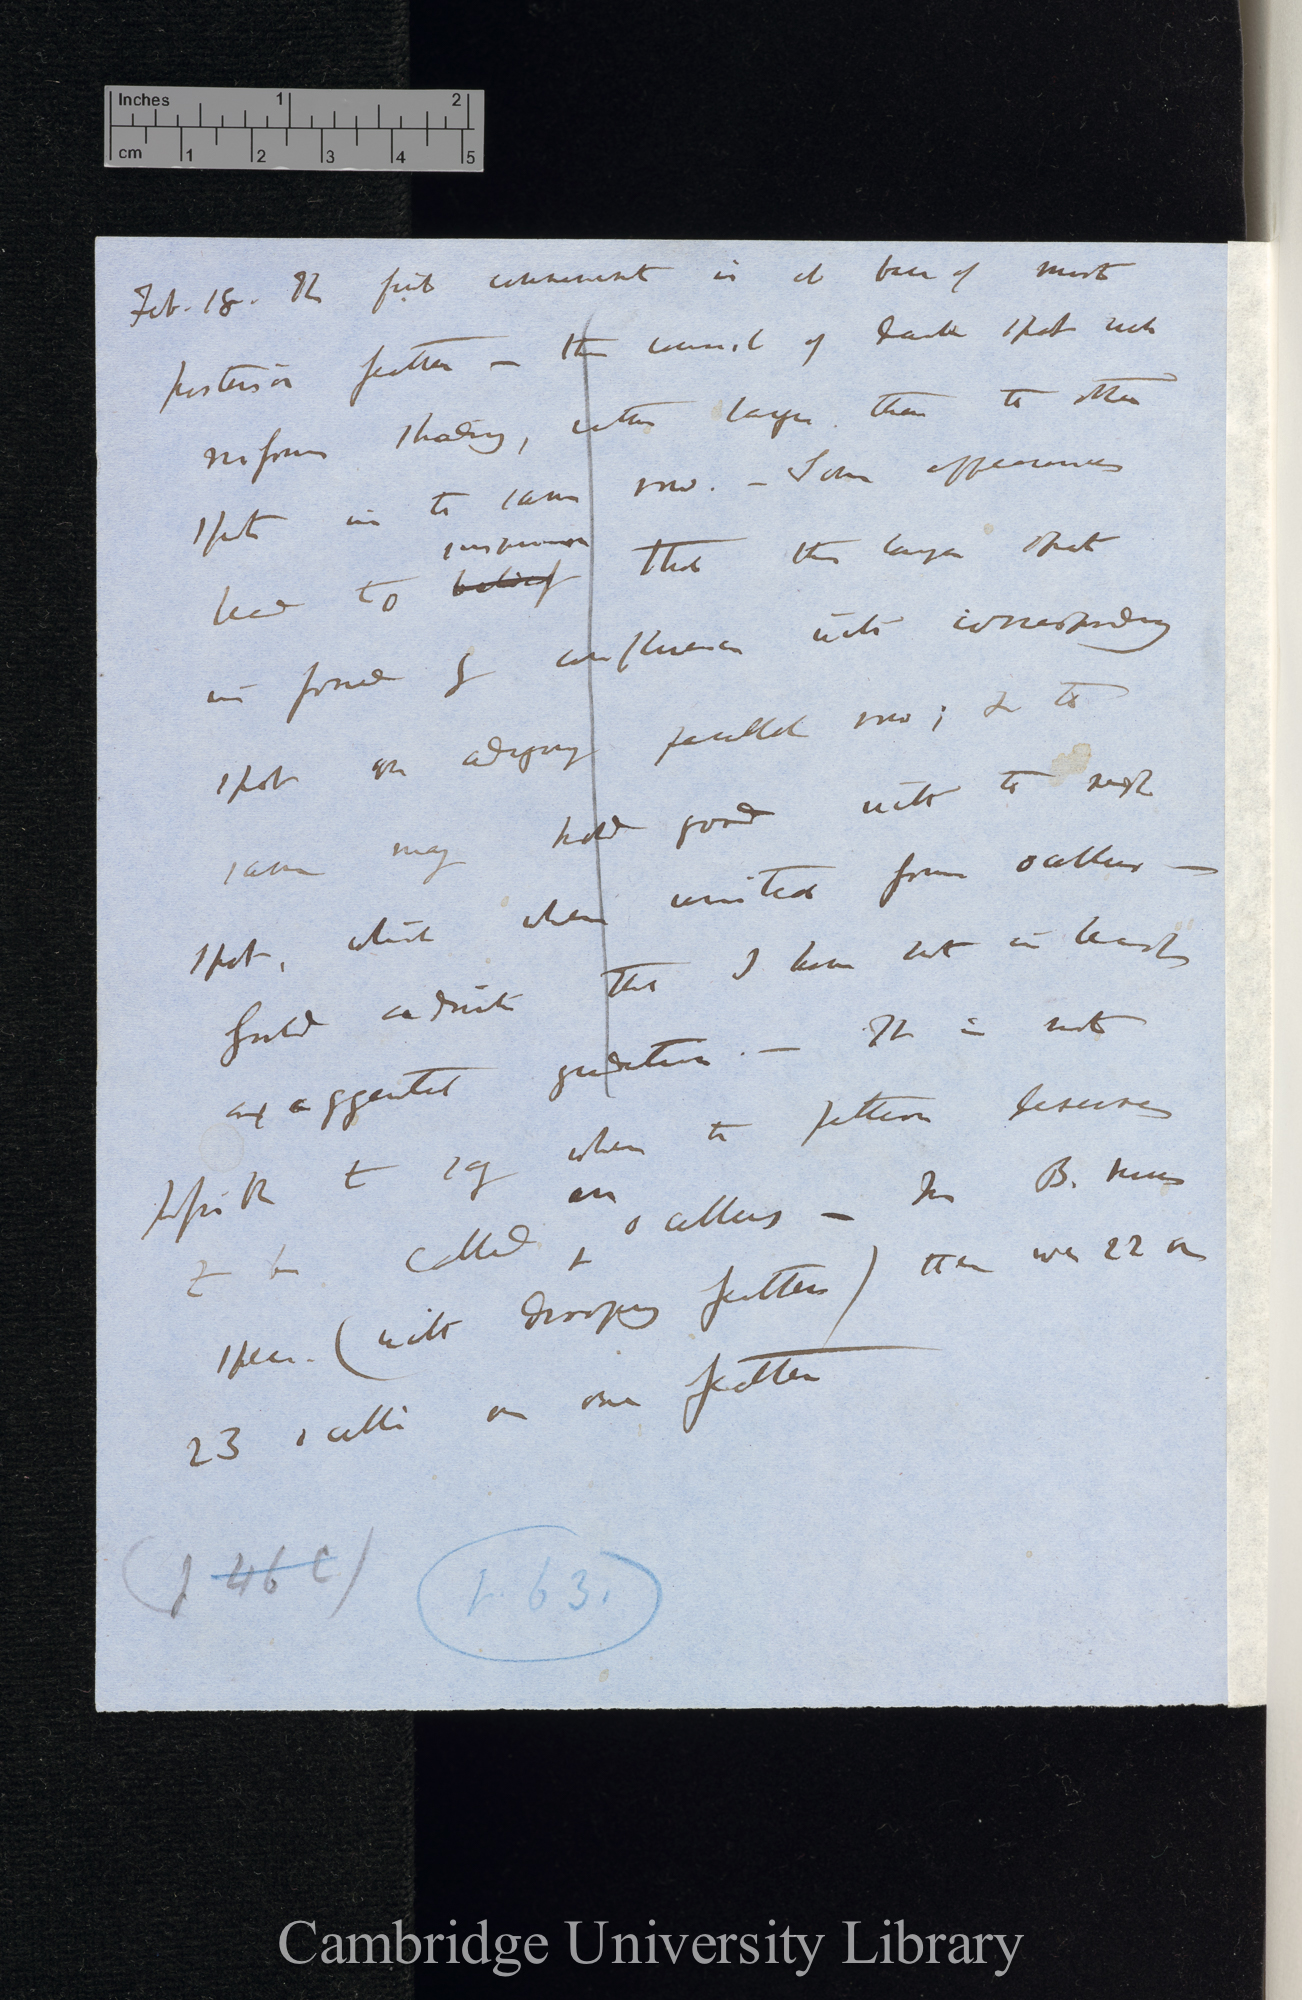 Inches 1 2
cm 1 2 3 4 5
Feb. 18. The first commencement is at base of most
posterior feather — this consist of dark spot with
rufous shading, rather larger than the other
spots in the same row. — Some appearances
suspicion
lead to belief that this larger spot
is formed by confluence with corresponding
spot on adjoining parallel row; & the
same may hold good with the next
spot, which when united form ocellus —
should admit that I have not in least
exaggerated gradation. — It is not
possible to say when the pattern deserves
an
to be called ocellus — In B. Mus
spec. (with drooping feathers) there were 22 or
23 ocelli on one feather
(p 46 c) p. 63.
Cambridge University Library